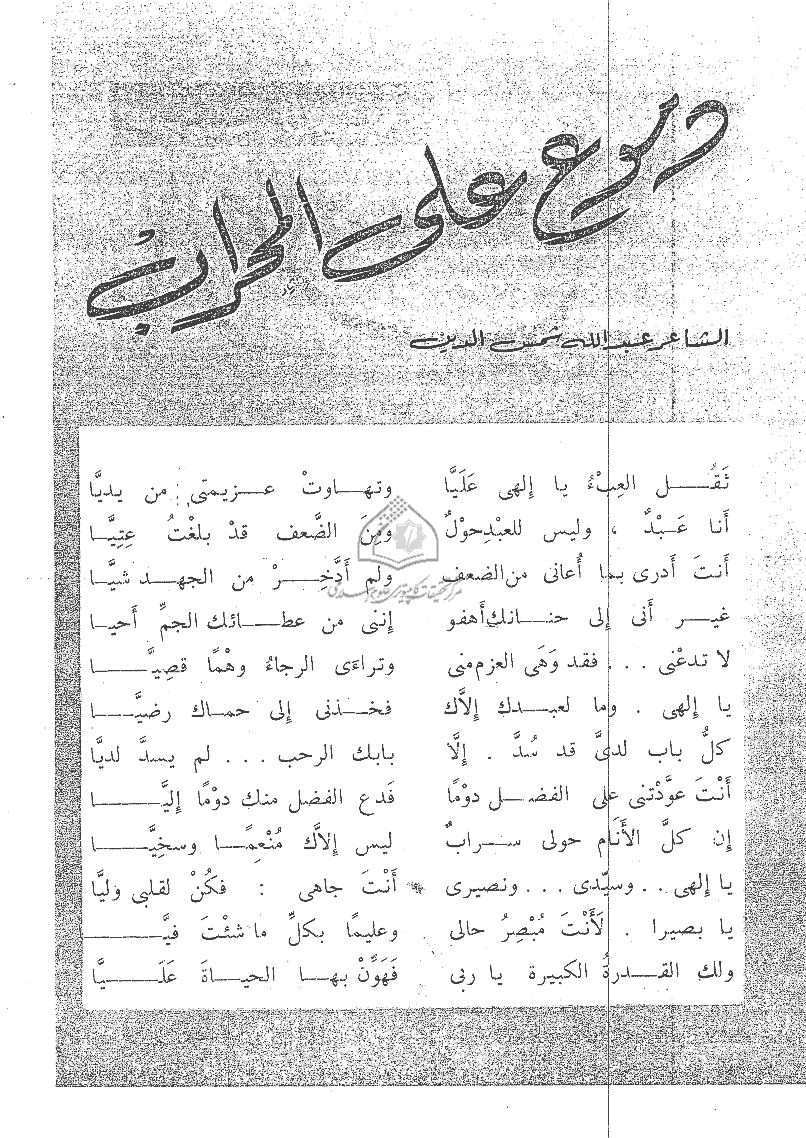 دموع على المحراب
الشاعر عبد الله شمس الدين
ثَقُـــل العِبْءُ يا إلهى عَلَيَّا وتهـــاوتْ عـــزيمتى من يديَّا
أنـا عَـــبْدٌ ، وليس للعبْدِحوْلٌ ومِنَ الضَّعف قدْ بلغْتُ عِتِيَّـــا
أنتَ أدرى بما أُعانى من الضعف ولم أدَّخِـــرْ من الجهـــد شيَّـــا
غيـــر أنى إلى حنـــانك أهفو إننى من عطـــائك الجمِّ أحيـــا
لا تدعْنى . . . فقد وَهَى العزم منى وتراءَى الرجاءُ وهْمًا قصِيَّـــا
يا إلهى . وما لعبـــدك إلاَّك فخـــذنى إلى حماك رضيَّـــا
كلُّ باب لدىَّ قد سُدَّ . إلَّا بابك الرحب . . . لم يسدَّ لديَّا
أنْتَ عوَّدْتنى على الفضـــل دوْمًا فَدع الفضل منك دوْمًا إليَّـــا
إن كلَّ الأنَام حولى ســـرابٌ ليس إلاَّك مُنْعِمًـــا وسخِيَّـــا
يا إلهى . . وسيِّدى . . . ونصيرى أنْتَ جاهى : فكُنْ لقلبى وليَّا
يا بصيرا . لَأَنْتَ مُبْصِرُ حالى وعليمًا بكلِّ ما شئْتَ فيَّـــا
ولك القـــدرةُ الكبيرة يا ربى فَهَوِّنْ بهـــا الحيـــاةَ عَلَـــيَّا
مركز تحقيقات كامپيوترى علوم اسلامى